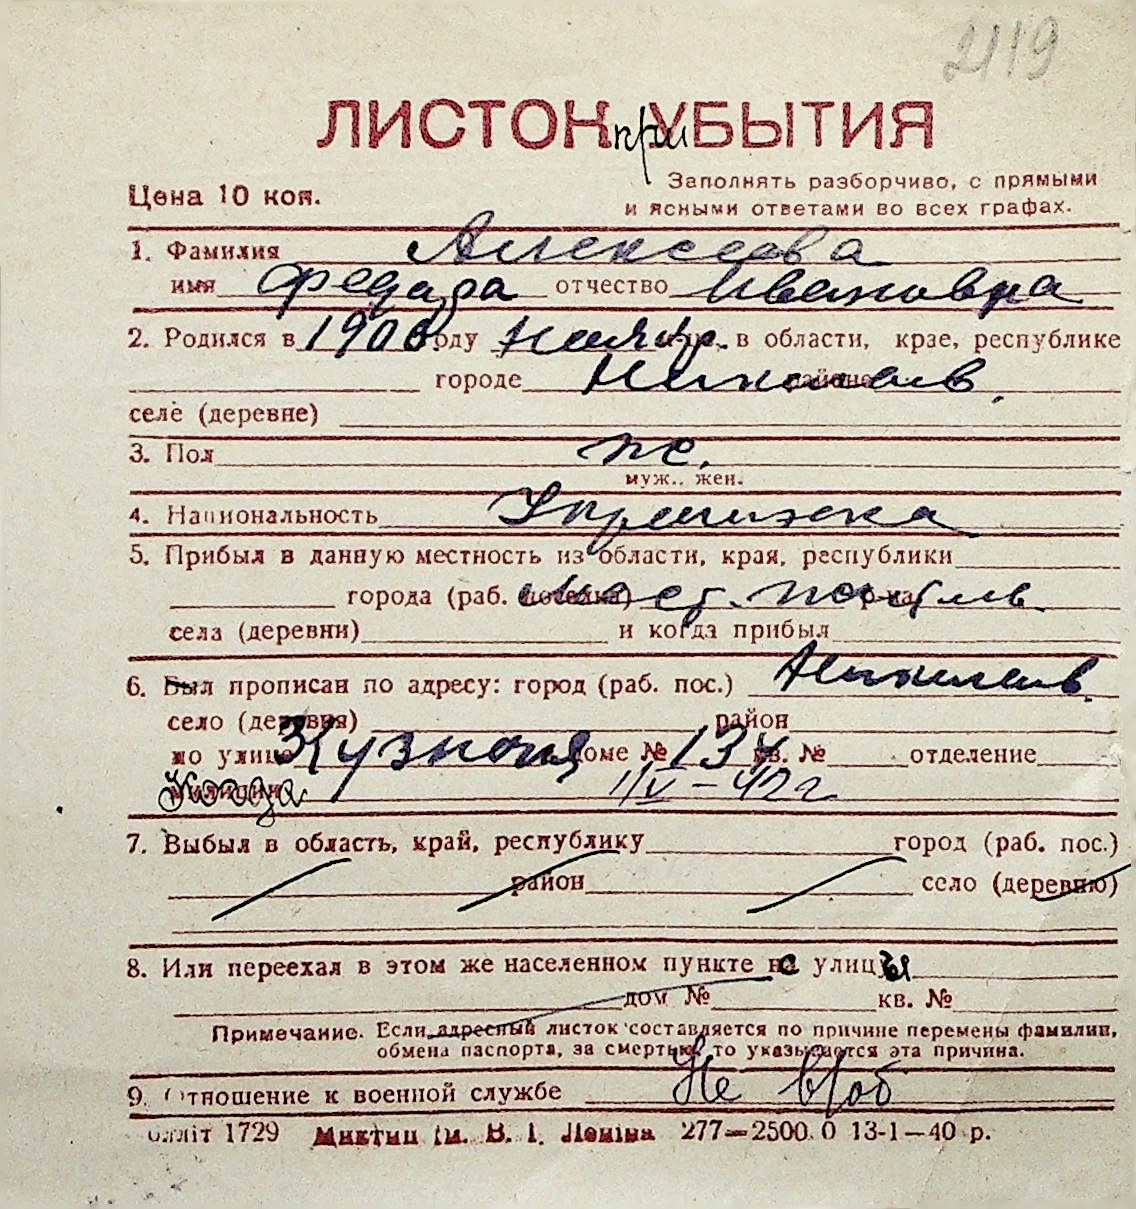 2119
ЛИСТОК при УБЫТИЯ
Цена 10 коп.
Заполнять разборчиво, с прямыми
и ясными ответами во всех графах.
1. Фамилия Алексеева
имя Федора отчество Ивановна
2. Родился в 1900 году м-це, в области, крае, республике
городе Николаев районе
селе (деревне)
3. Пол ж.
муж.. жен.
4. Национальность Украинка
5. Прибыл в данную местность из области, края, республики
города (раб. поселка) р-на
села (деревни) и когда прибыл
6. Был прописан по адресу: город (раб. пос.) Николаев
село (деревня) район
по улице доме № 13 кв. № отделение
милиции Когда 1/IV-42 г
7. Выбыл в область, край, республику город (раб. пос.)
район село (деревню)
8. Или переехал в этом же населенном пункте с улицы
дом № кв. №
Примечание. Если адресный листок составляется по причине перемены фамилии,
обмена паспорта, за смертью, то указывается эта причина.
9. Отношение к военной службе Не в/об
олліт 1729 ім. В. І. Леніна 277—2500 0 13-1—40 р.